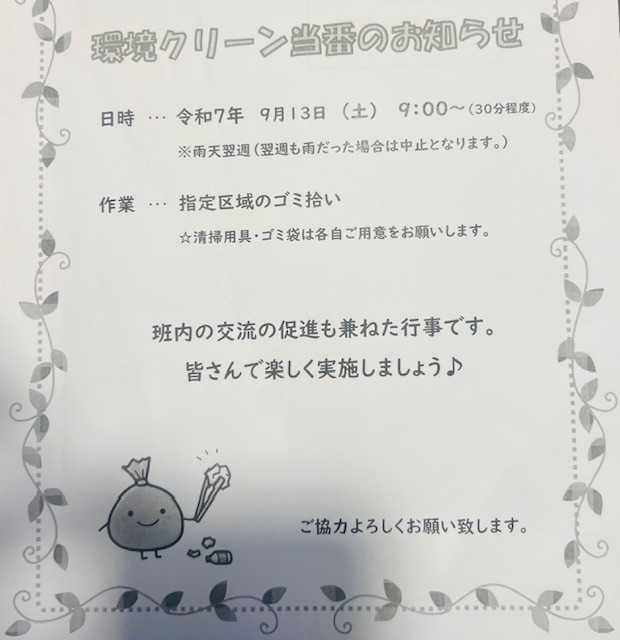 環境クリーン当番のお知らせ
日時 … 令和7年 9月13日 (土) 9:00～(30分程度)
※雨天翌週(翌週も雨だった場合は中止となります。)
作業 … 指定区域のゴミ拾い
☆清掃用具・ゴミ袋は各自ご用意をお願いします。
班内の交流の促進も兼ねた行事です。
皆さんで楽しく実施しましょう♪
ご協力よろしくお願い致します。